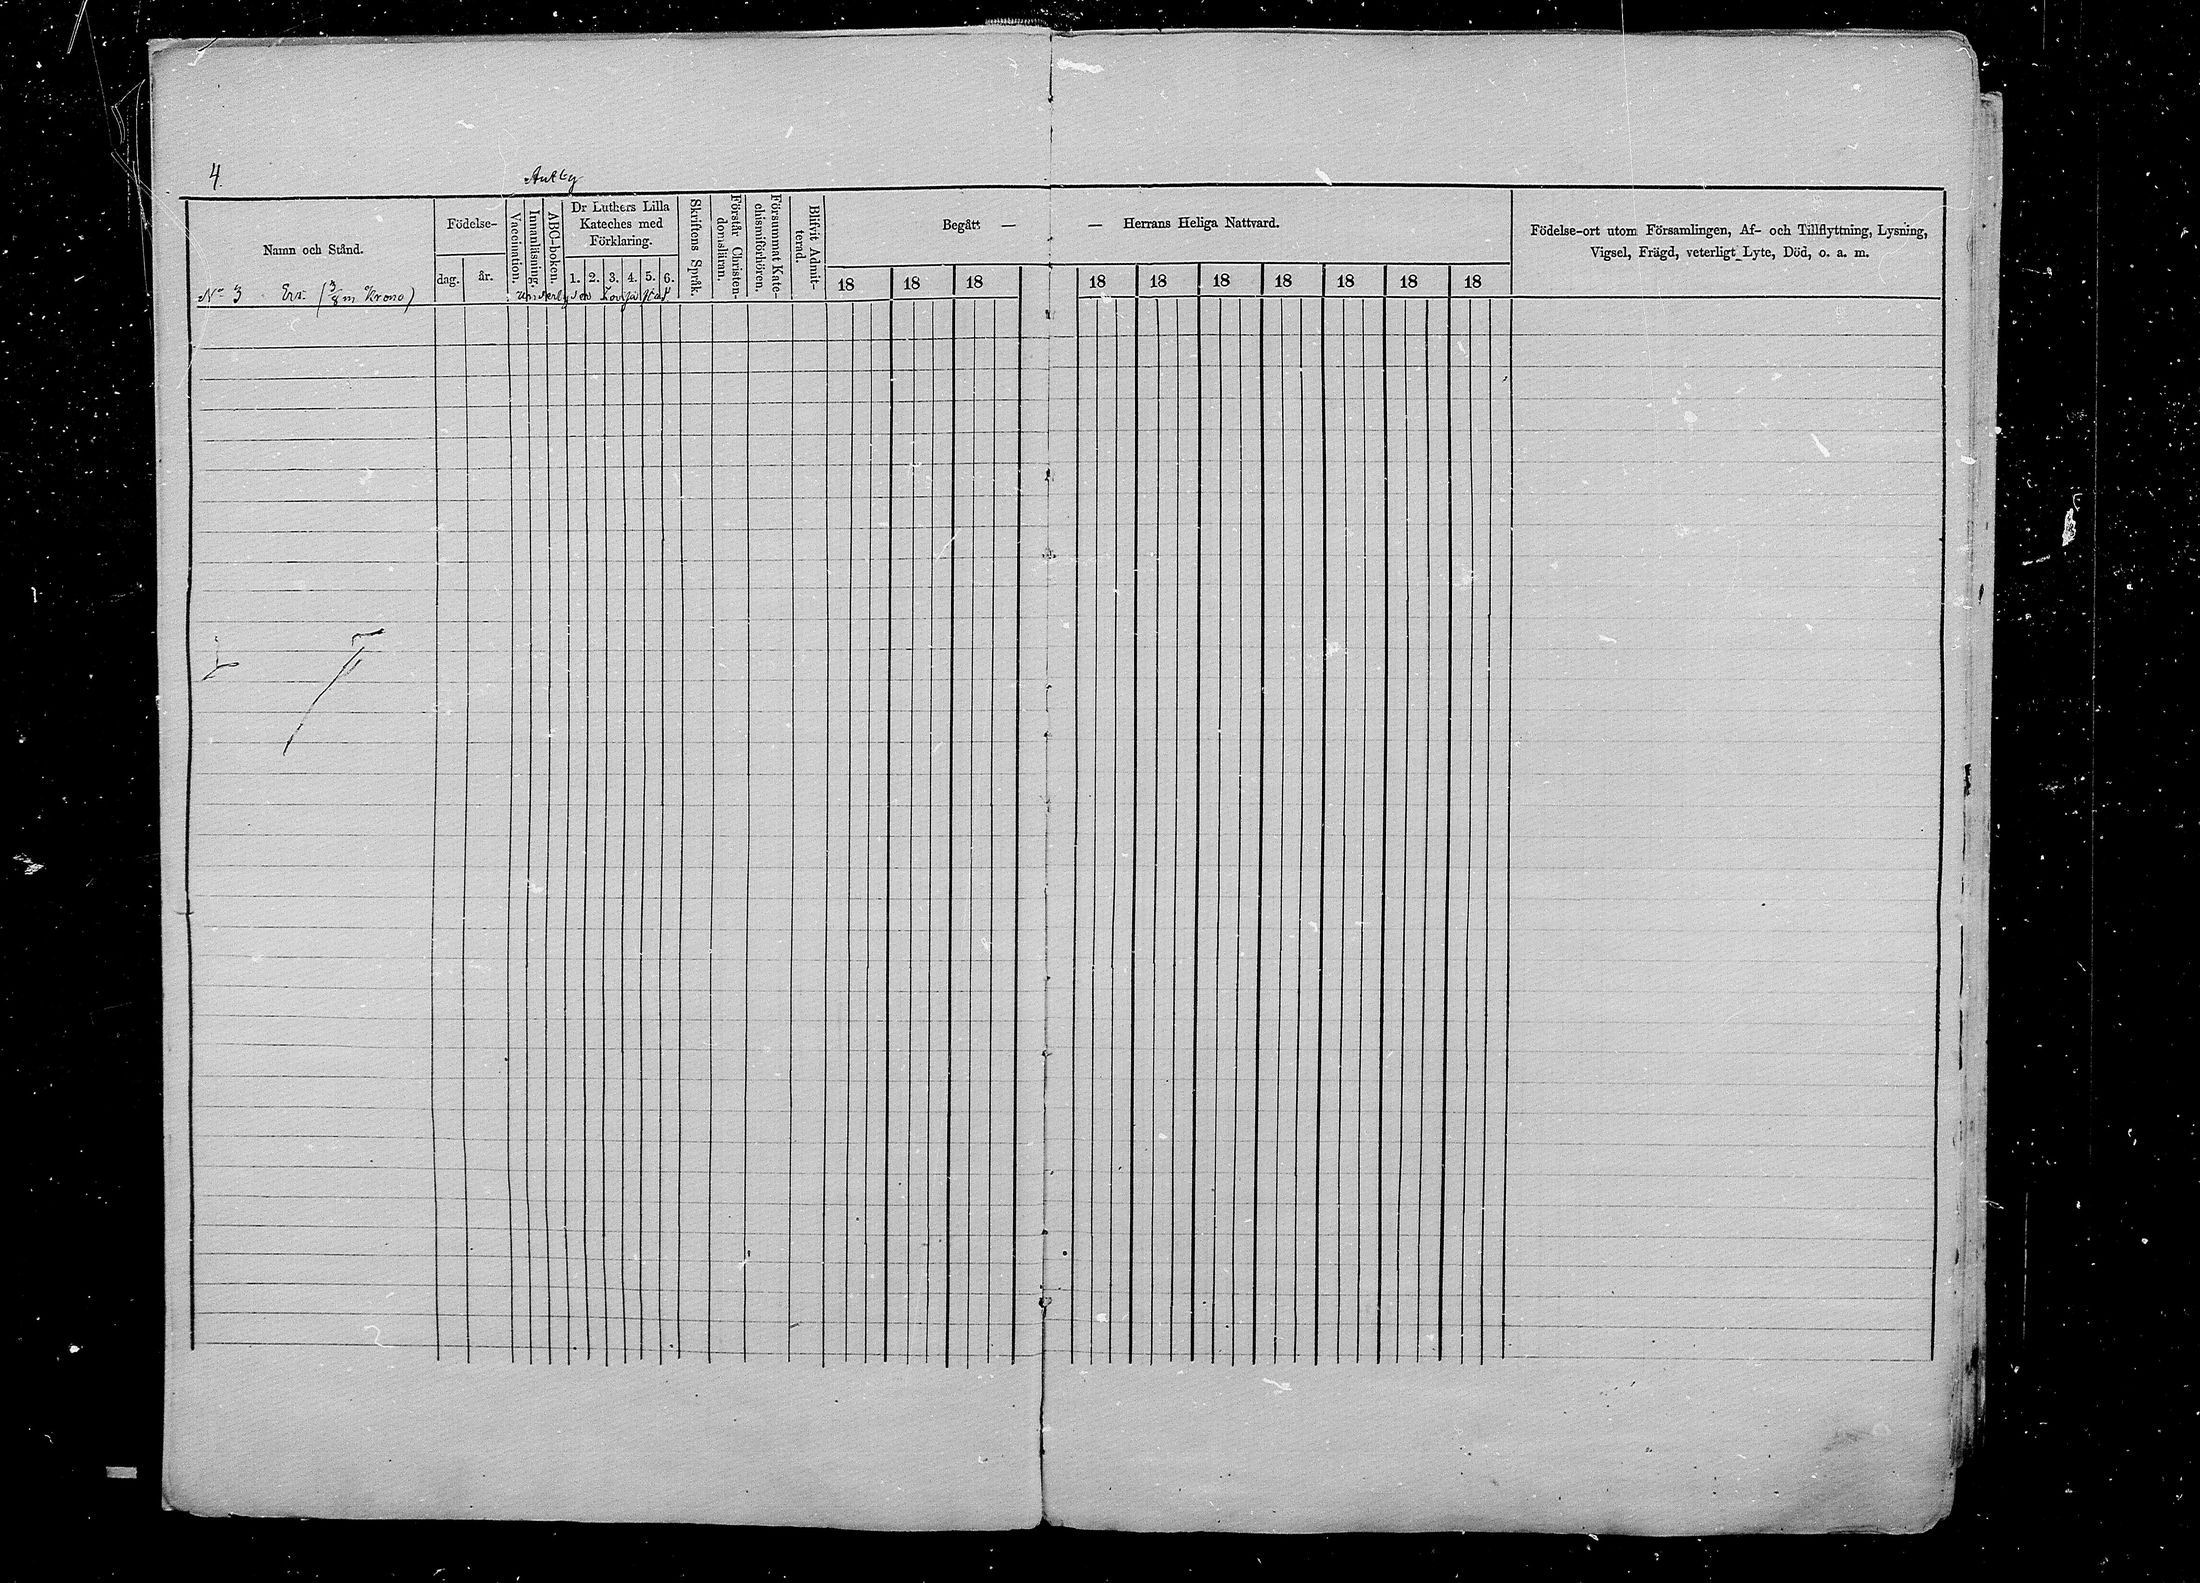 4.
Antby
Namn och Stånd.
Födelse-
dag.
år.
Vaccination.
Innanläsning.
ABC-boken.
Dr Luthers Lilla
Kateches med
Förklaring.
1. 2. 3. 4. 5. 6.
Skriftens Språk.
Förstår Christen-
domsläran.
Försummat Kate-
chismiförhören.
Blifvit Admit-
terad.
Begått —
— Herrans Heliga Nattvard.
18 18 18 18 18 18 18 18 18 18
Födelse-ort utom Församlingen, Af- och Tillflyttning, Lysning,
Vigsel, Frägd, veterligt Lyte, Död, o. a. m.
No 3 (3/8 m Krono)